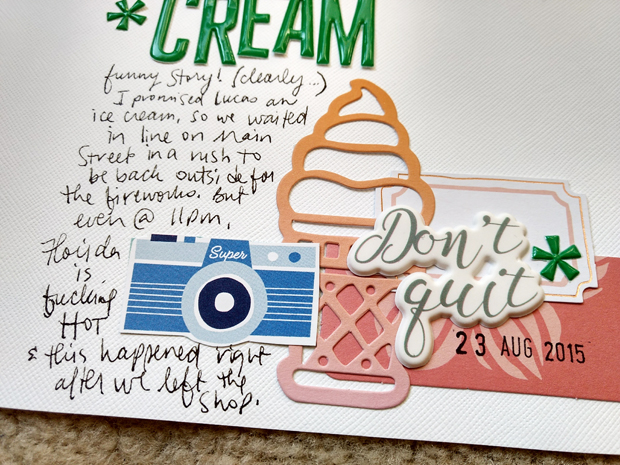 * CREAM
funny story! (clearly...)
I promised Lucas an
ice cream, so we waited
in line on Main
Street in a rush to
be back outside for
the fireworks. But
even @ 11pm,
Florida
is
fucking
HOT
& this happened right
after we left the
shop.
Super
Don't
quit *
23 AUG 2015